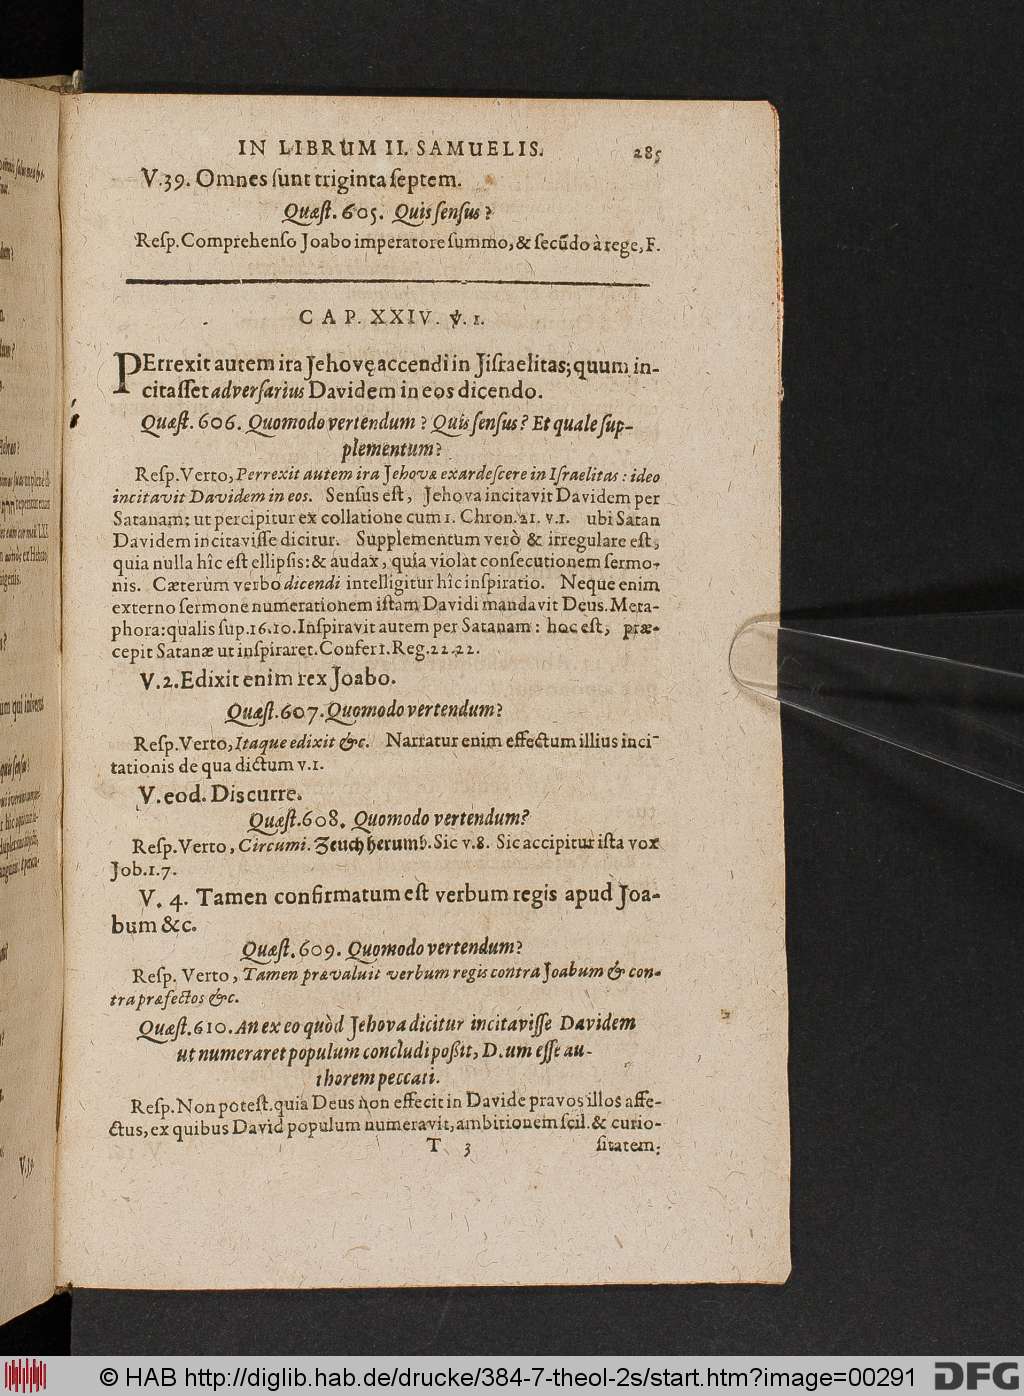 IN LIBRUM II. SAMUELIS. 285
V.39. Omnes ſunt triginta ſeptem.
Quæſt. 605. Quis ſenſus?
Reſp. Comprehenſo Joabo imperatore ſummo, & ſecũdo à rege, F.
CAP. XXIV. V. 1.
PErrexit autem ira Jehovę accendi in Jiſraelitas; quum in-
citaſſet adverſarius Davidem in eos dicendo.
Quæſt. 606. Quomodo vertendum? Quis ſenſus? Et quale ſup-
plementum?
Reſp. Verto, Perrexit autem ira Jehovæ exardeſcere in Iſraelitas: ideo
incitavit Davidem in eos. Senſus eſt, Jehova incitavit Davidem per
Satanam: ut percipitur ex collatione cum 1. Chron. 21. v.1. ubi Satan
Davidem incitaviſſe dicitur. Supplementum verò & irregulare eſt,
quia nulla hîc eſt ellipſis: & audax, quia violat conſecutionem ſermo-
nis. Cæterùm verbo dicendi intelligitur hîc inſpiratio. Neque enim
externo ſermone numerationem iſtam Davidi mandavit Deus. Meta-
phora: qualis ſup. 16.10. Inſpiravit autem per Satanam: hoc eſt, præ-
cepit Satanæ ut inſpiraret. Confer 1. Reg. 22.22.
V.2. Edixit enim rex Joabo.
Quæſt. 607. Quomodo vertendum?
Reſp. Verto, Itaque edixit &c. Narratur enim effectum illius inci-
tationis de qua dictum v.1.
V. eod. Discurre.
Quæſt. 608. Quomodo vertendum?
Reſp. Verto, Circumi. Zeuch herumb. Sic v.8. Sic accipitur iſta vox
Job. 1.7.
V. 4. Tamen confirmatum eſt verbum regis apud Joa-
bum &c.
Quæſt. 609. Quomodo vertendum?
Reſp. Verto, Tamen prævaluit verbum regis contra Joabum & con-
tra præfectos &c.
Quæſt. 610. An ex eo quòd Jehova dicitur incitaviſſe Davidem
ut numeraret populum concludi poßit, D.um eſſe au-
thorem peccati.
Reſp. Non poteſt. quia Deus non effecit in Davide pravos illos affe-
ctus, ex quibus David populum numeravit, ambitionem ſcil. & curio-
T 3 ſitatem:
© HAB http://diglib.hab.de/drucke/384-7-theol-2s/start.htm?image=00291 DFG